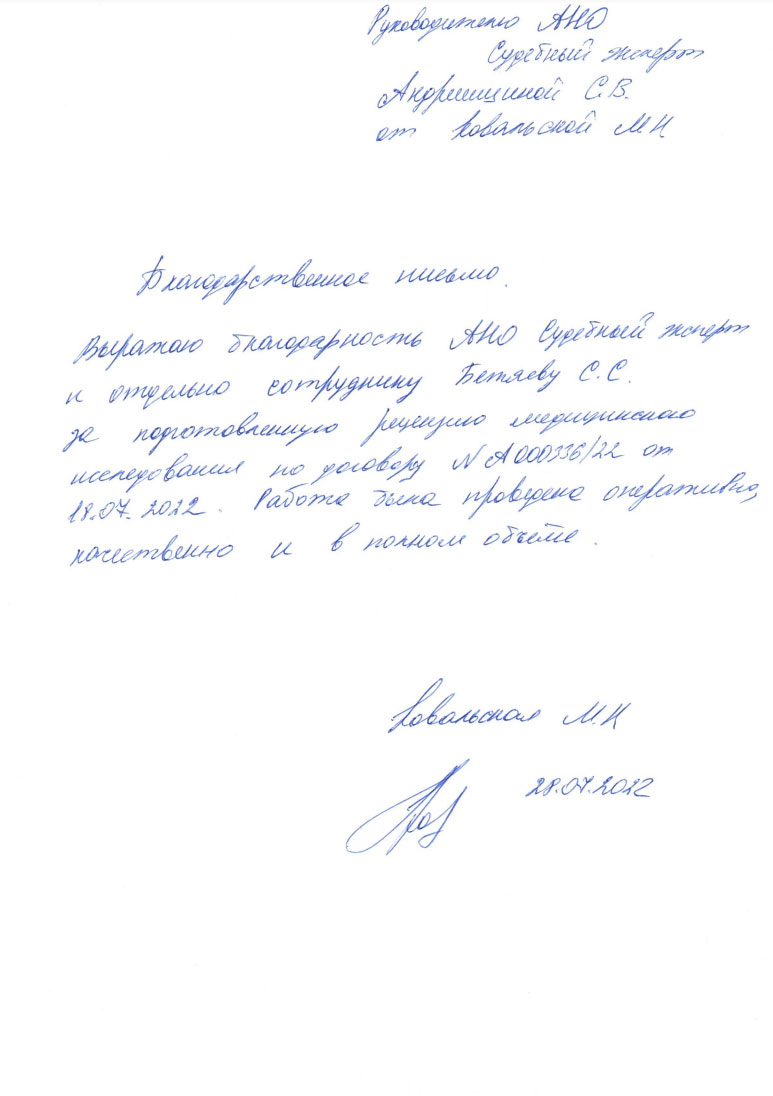 Руководителю АНО
Судебный эксперт
Андрющиной С.В.
от Ковальской М Н
Благодарственное письмо.
Выражаю благодарность АНО Судебный эксперт
и отдельно сотруднику Бетяеву С.С.
за подготовленную рецензию медицинского
исследования по договору N А000336/22 от
18.07.2022. Работа была проведена оперативно,
качественно и в полном объеме.
Ковальская М.Н
28.07.2022